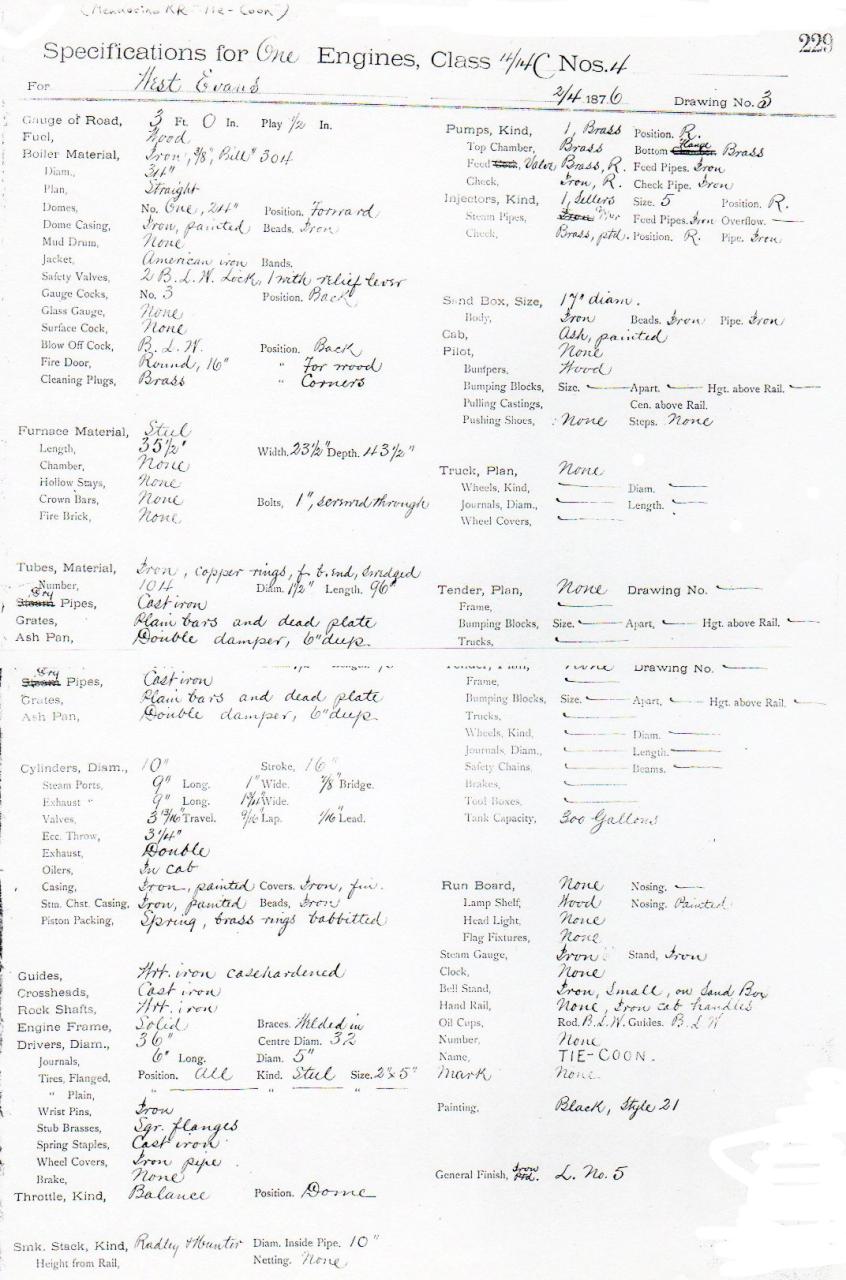 (Mendocino RR "Tie-Coon")
229
Specifications for One Engines, Class 11/14 C Nos. 4
For West Evans 2/4 1876 Drawing No. 3
Gauge of Road, 3 Ft. 0 In. Play 1/2 In.
Fuel, Wood
Boiler Material, Iron, 3/8" Bill" 304
Diam., 34"
Plan, Straight
Domes, No. One, 24" Position. Forward
Dome Casing, Iron, painted Beads. Iron
Mud Drum, None
Jacket, American iron Bands.
Safety Valves, 2 B. L. W. Lock, 1 with relief lever
Gauge Cocks, No. 3 Position. Back
Glass Gauge, None
Surface Cock, None
Blow Off Cock, B. L. W. Position. Back
Fire Door, Round, 16" " For wood
Cleaning Plugs, Brass " Corners
Furnace Material, Steel
Length, 35 1/2" Width. 23 1/2" Depth. 43 1/2"
Chamber, None
Hollow Stays, None
Crown Bars, None Bolts, 1", screwed through
Fire Brick, None
Tubes, Material, Iron, copper rings, f. b. end, swedged
Number, 104 Diam. 1 1/2" Length. 96"
Dry
Steam Pipes, Cast iron
Grates, Plain bars and dead plate
Ash Pan, Double damper, 6" deep
Dry
Steam Pipes, Cast iron
Grates, Plain bars and dead plate
Ash Pan, Double damper, 6" deep
Cylinders, Diam., 10" Stroke, 16"
Steam Ports, 9" Long. 1" Wide. 7/8" Bridge.
Exhaust " 9" Long. Wide.
Valves, 3 13/16" Travel. 9/16" Lap. 1/16" Lead.
Ecc. Throw, 3 1/4"
Exhaust, Double
Oilers, In cab
Casing, Iron, painted Covers. Iron, fin.
Stm. Chst. Casing, Iron, painted Beads, Iron
Piston Packing, Spring, brass rings babbitted
Guides, Wrt. iron casehardened
Crossheads, Cast iron
Rock Shafts, Wrt. iron
Engine Frame, Solid Braces. Welded in
Drivers, Diam., 36" Centre Diam. 32
Journals, 6" Long. Diam. 5"
Tires, Flanged, Position. All Kind. Steel Size. 2" x 5"
" Plain, " " "
Wrist Pins, Iron
Stub Brasses, Sqr. flanges
Spring Staples, Cast iron
Wheel Covers, Iron pipe
Brake, None
Throttle, Kind, Balance Position. Dome
Smk. Stack, Kind, Radley & Hunter Diam. Inside Pipe. 10"
Height from Rail, Netting. None
Pumps, Kind, 1, Brass Position. R.
Top Chamber, Brass Bottom Flange Brass
Feed Valve Brass, R. Feed Pipes. Iron
Check, Iron, R. Check Pipe. Iron
Injectors, Kind, 1, Sellers Size. 5 Position. R.
Steam Pipes, Iron Feed Pipes. Iron Overflow. —
Check, Brass, ptd. Position. R. Pipe. Iron
Sand Box, Size, 17" diam.
Body, Iron Beads. Iron Pipe. Iron
Cab, Ash, painted
Pilot, None
Bumpers, Wood
Bumping Blocks, Size. — Apart. — Hgt. above Rail. —
Pulling Castings, Cen. above Rail.
Pushing Shoes, None Steps. None
Truck, Plan, None
Wheels, Kind, — Diam. —
Journals, Diam., — Length. —
Wheel Covers, —
Tender, Plan, None Drawing No. —
Frame, —
Bumping Blocks, Size. — Apart, — Hgt. above Rail. —
Trucks, —
Tender, Plan, None Drawing No. —
Frame, —
Bumping Blocks, Size. — Apart, — Hgt. above Rail. —
Trucks, —
Wheels, Kind, — Diam. —
Journals, Diam., — Length. —
Safety Chains, — Beams. —
Brakes, —
Tool Boxes, —
Tank Capacity, 300 Gallons
Run Board, None Nosing. —
Lamp Shelf, Wood Nosing. Painted
Head Light, None
Flag Fixtures, None
Steam Gauge, Iron Stand, Iron
Clock, None
Bell Stand, Iron, Small, on Sand Box
Hand Rail, None, Iron cab handles
Oil Cups, Rod. B. L. W. Guides. B. L. W
Number, None
Name, TIE-COON.
Mark None
Painting, Black, Style 21
General Finish, Iron Ptd. L. No. 5